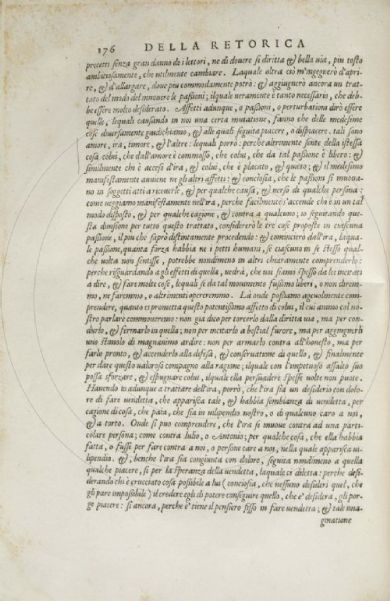 176 DELLA RETORICA
precetti senza gran danno de i lettori, ne di douere sì diritta & bella uia, piu tosto
ambitiosamente, che utilmente cambiare. Laquale oltra ciò m'ingegnerò d'apri-
re, & d'allargare, doue piu commodamente potrò: & aggiugnerò ancora un trat-
tato del modo del mouere le passioni; ilquale ueramente è tanto necessario, che deb-
be essere molto desiderato. Affetti adunque, o passioni, o perturbationi dirò essere
quelle, lequali causando in noi una certa mutatione, fanno che delle medesime
cose diuersamente giudichiamo, & alle quali seguita piacere, o dispiacere. tali sono
amore, ira, timore, & l'altre: lequali porrò: perche altrimente sente della istessa
cosa colui, che dall'amore è commosso, che colui, che da tal passione è libero: &
similmente chi è acceso d'ira, & colui, che è placato, & quieto; & il medesimo
manifestamente auuiene ne gli altri affetti: & conciosia, che le passioni si muoua-
no in soggetti atti a riceuerle, & per qualche causa, & uerso di qualche persona:
come ueggiamo manifestamente nell'ira, perche facilmente s'accende chi è in un tal
modo disposto, & per qualche cagione, & contra a qualcuno; io seguitando que-
sta diuisione per tutto questo trattato, considererò le tre cose proposte in ciascuna
passione, il piu che saprò distintamente procedendo: & comincierò dall'ira, laqua-
le passione, quanta forza habbia ne i petti humani, se ciascuno in se stesso qual-
che uolta non sentisse, potrebbe nondimeno in altri chiaramente comprenderlo:
perche risguardando a gli effetti di quella, uedrà, che noi siamo spesso da lei incitati
a dire, & fare molte cose, lequali se da tal mouimento fussimo liberi, o non direm-
mo, ne faremmo, o altrimenti opereremmo. Là onde possiamo ageuolmente com-
prendere, quanto ci prometta questo potentissimo affetto di colui, il cui animo col no-
stro parlare commouemmo: non già dico per torcerlo dalla diritta uia, ma per con-
durlo, & firmarlo in quella; non per incitarlo a bestial furore, ma per aggiungerli
uno stimolo di magnanimo ardire: non per armarlo contra all'honesto, ma per
farlo pronto, & accenderlo alla difesa, & conseruatione di quello, & finalmente
per dare questo ualoroso compagno alla ragione; ilquale con l'impetuoso assalto suo
possa sforzare, & espugnare colui, ilquale ella persuadere spesse uolte non puote.
Hauendo io adunque a trattare dell'ira, porrò, che l'ira sia un desiderio con dolo-
re di fare uendetta, che apparisca tale, & habbia sembianza di uendetta, per
cagione di cosa, che paia, che sia in uilipendio nostro, o di qualcuno caro a noi,
& a torto. Onde si puo comprendere, che l'ira si muoue contra ad una parti-
colare persona; come contra Iulio, o Antonio; per qualche cosa, che ella habbia
fatta, o fussi per fare contra a noi, o persone care a noi, nella quale apparisca ui-
lipendio. & benche l'ira sia congiunta con dolore, seguita nondimeno a quella
qualche piacere, sì per la speranza della uendetta, laquale ci diletta: perche desi-
derando chi è crucciato cosa possibile a lui (conciosia, che nessuno desideri quel, che
gli pare impossibile) il credere egli di potere conseguire quello, che e' desidera, gli por-
ge piacere: sì ancora, perche e' tiene il pensiero fisso in fare uendetta; & tale ima-
ginatione